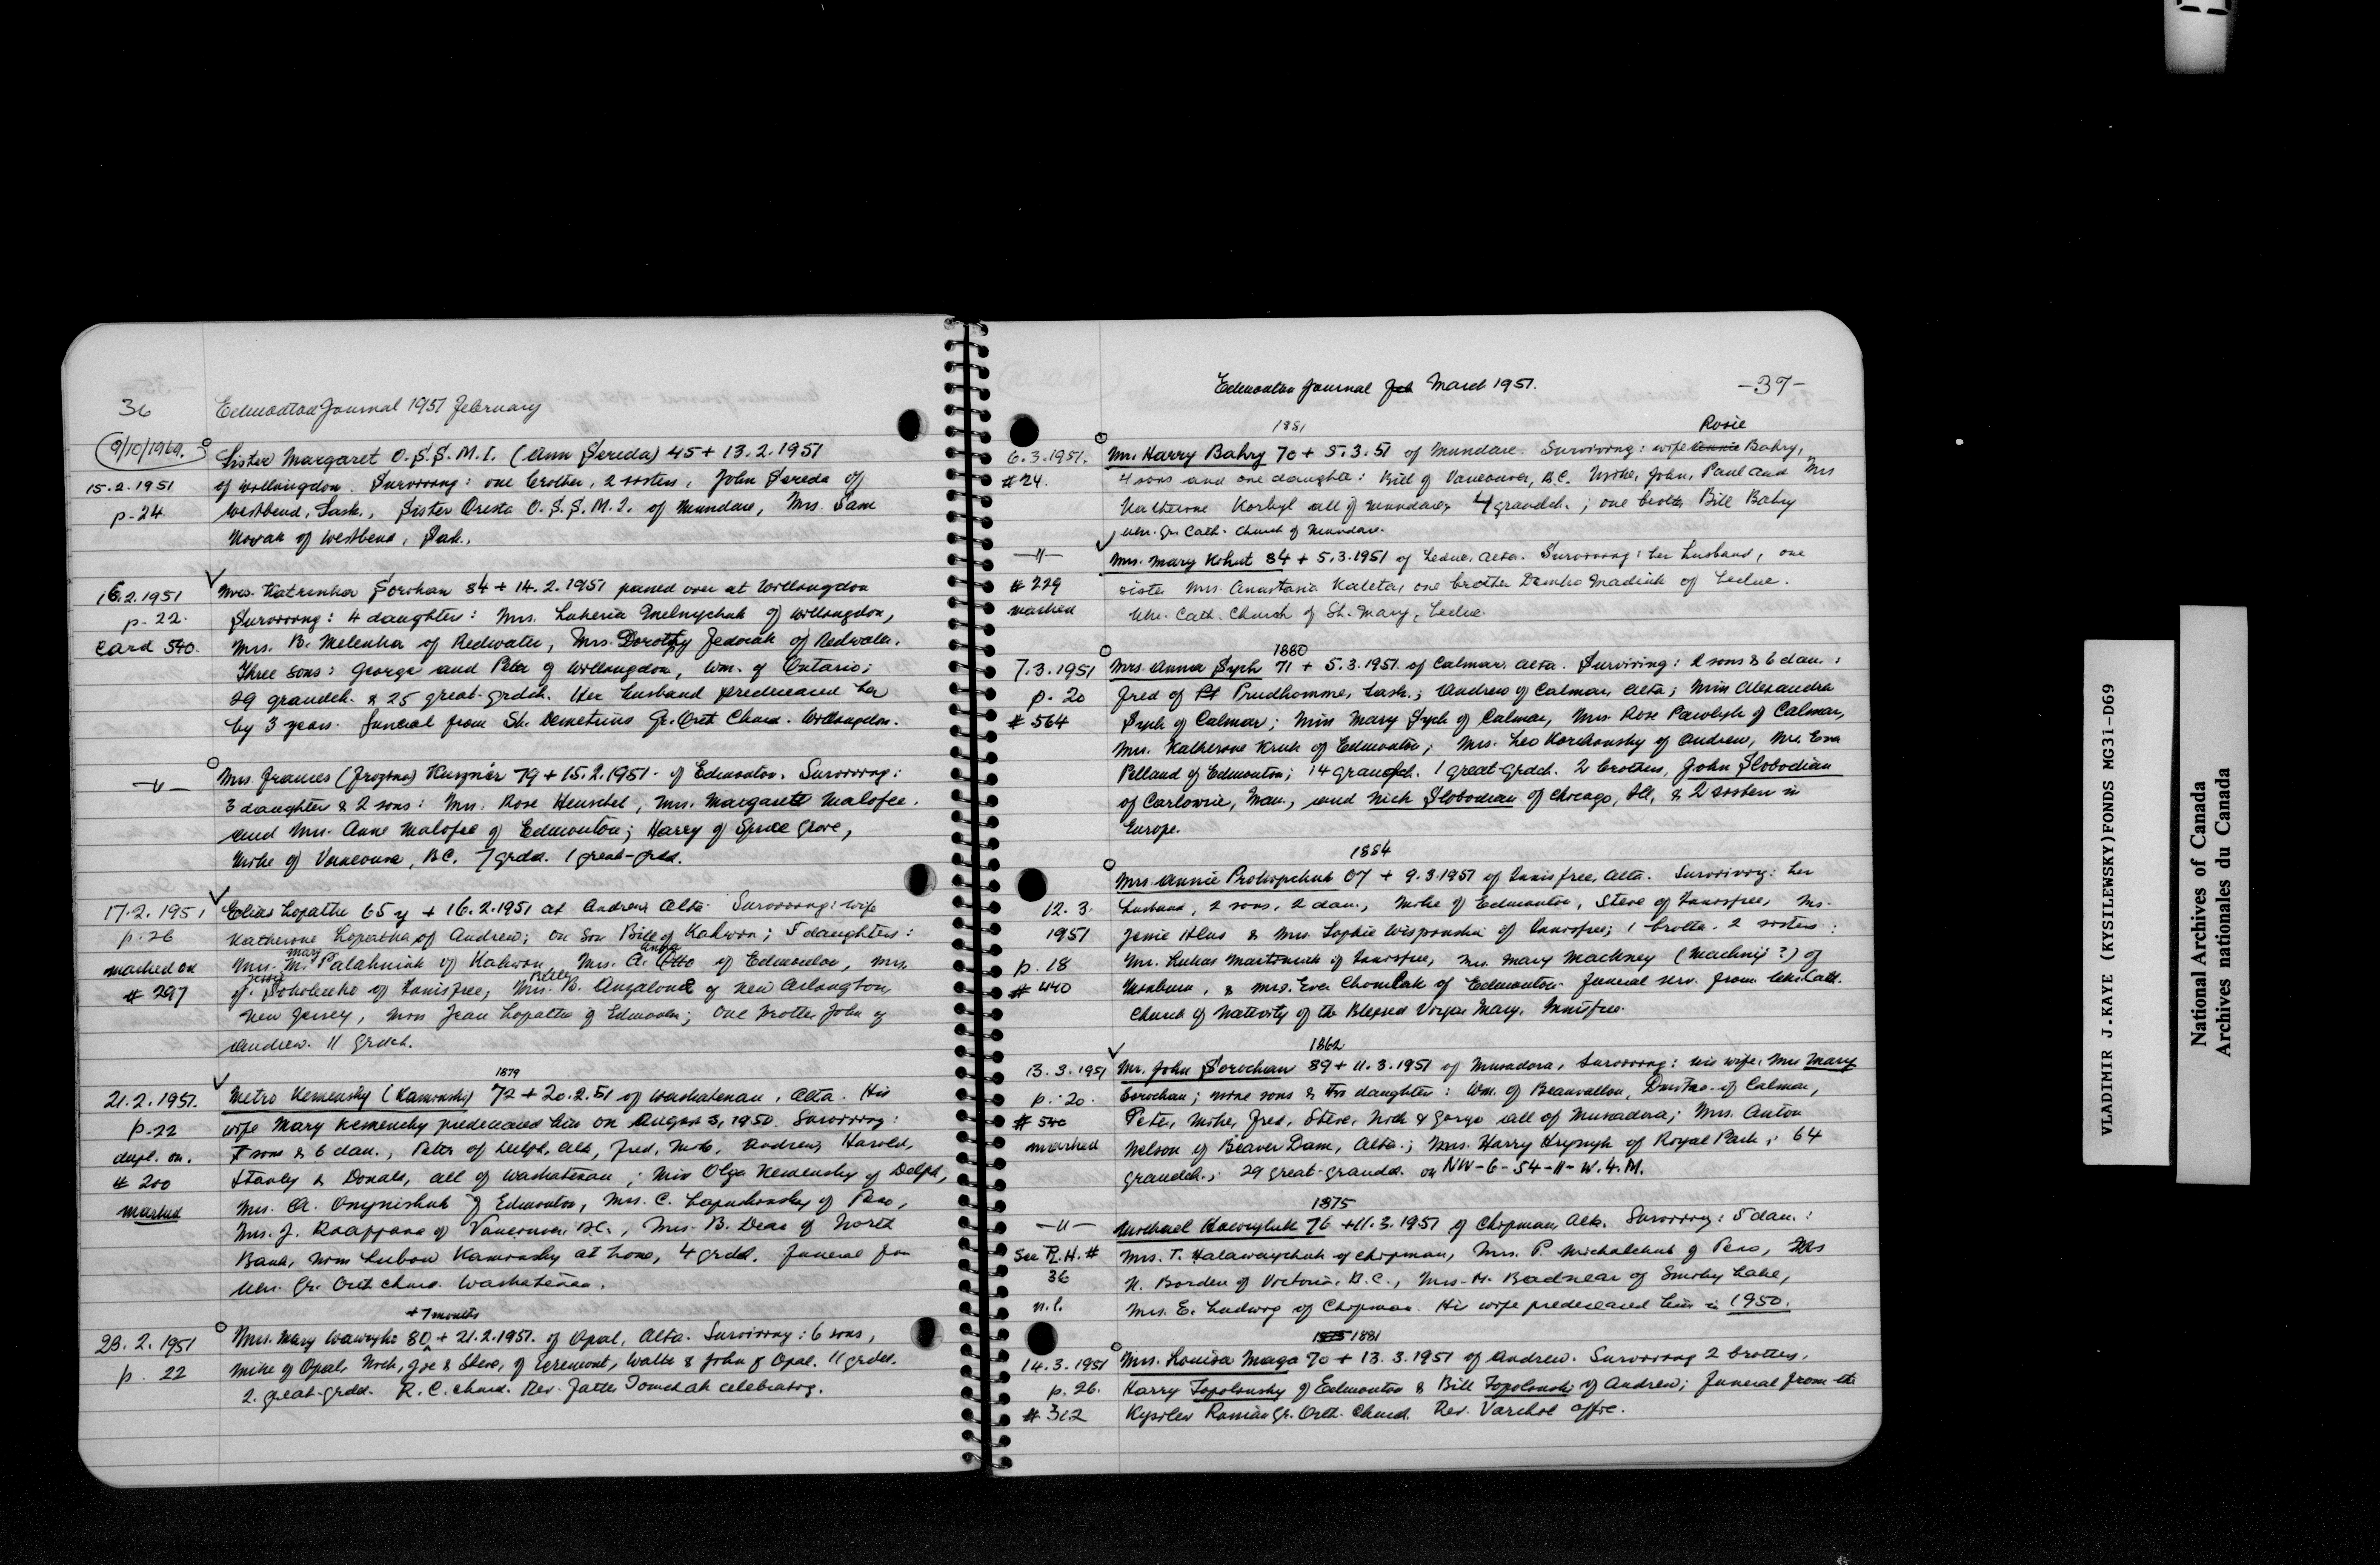 36 Edmonton Journal 1951 February
9/10/1969.
Sister Margaret O.S.S.M.I. (Ann Sereda) 45 + 13.2.1951
15.2.1951 of Willingdon. Surviving: one brother, 2 sisters, John Sereda of
p. 24 Westbend, Sask., Sister Oresta O.S.S.M.I. of Mundare, Mrs. Sam
Novak of Westbend, Sask.
16.2.1951 Mrs. Katrinka Sorokan 84 + 14.2.1951 passed over at Willingdon
p. 22. Surviving: 4 daughters: Mrs. Lukeria Melnychuk of Willingdon,
Card 540. Mrs. B. Melenka of Redwater, Mrs. Dorothy Fedorak of Redwater.
Three sons: George and Peter of Willingdon, Wm. of Ontario;
29 grandch. & 25 great-grdch. Her husband predeceased her
by 3 years. Funeral from St. Demetrius Gr. Ort Church. Willingdon.
—"— Mrs. Frances (Frozina) Kuzner 79 + 15.2.1951. of Edmonton. Surviving:
3 daughters & 2 sons: Mrs. Rose Henschel, Mrs. Margaret Malofee.
and Mrs. Anne Malofee of Edmonton; Harry of Spruce Grove,
Mike of Vancouver, BC. 7 grdch. 1 great-grdch.
17.2.1951 Elias Lopatka 65 y + 16.2.1951 at Andrew Alta. Surviving: wife
p. 26 Katherine Lopatka of Andrew; on son Bill of Kahwin; 5 daughters:
Mary Anna
marked on Mrs. M. Palahniuk of Kahwin, Mrs. A. of Edmonton, Mrs.
Jessie Billey
# 297 J. Sokolenko of Innisfree, Mrs. B. Anzalone of New Arlington
New Jersey, Miss Jean Lopatka of Edmonton; One brother John of
Andrew. 11 grdch.
1879
21.2.1951. Metro Kemensky (Kaminski) 72 + 20.2.51 of Waskatenau, Alta. His
p. 22 wife Mary Kemensky predeceased him on August 3, 1950. Surviving:
dupl. on. 7 sons & 6 dau., Peter of Delph, Alta, Fred, Nick, Andrew, Harold,
# 200 Stanley & Donald, all of Waskatenau; Miss Olga Kemensky of Delph,
marked Mrs. A. Onynishuk of Edmonton, Mrs. C. Lapuchovsky of Peno,
Mrs. J. of Vancouver B.C., Mrs. B. Dear of North
Bank, Miss Lubow Kaminsky at home, 4 grdch. Funeral from
Ukr. Gr. Orth church. Waskatenau.
+7 months
23.2.1951 Mrs. Mary Wawryko 80 + 21.2.1951. of Opal, Alta. Surviving: 6 sons,
p. 22 Mike of Opal, Nick, Joe & Steve, of Egremont, Walter & John of Opal. 11 grdch.
2. great-grdch. R.C. church. Rev. Father Tomchak celebrating.
Edmonton Journal Feb March 1951. -37-
1881 Rosie
6.3.1951. Mr. Harry Bahry 70 + 5.3.51 of Mundare. Surviving: wife Annie Bahry,
# 24. 4 sons and one daughter: Bill of Vancouver, B.C. Mike, John, Paul and Mrs
Katherine Korbyl all of Mundare; 4 grandch.; one brother Bill Bahry
Ukr. Gr. Cath. Church of Mundare.
—"— Mrs. Mary Kohut 84 + 5.3.1951 of Leduc, Alta. Surviving: her husband, one
# 229 sister Mrs. Anastasia Kaleta, one brother Demko Madiuk of Leduc.
marked Ukr. Cath. Church of St. Mary, Leduc.
1880
7.3.1951 Mrs. Anna Sych 71 + 5.3.1951. of Calmar, Alta. Surviving: 2 sons & 6 dau.:
p. 20 Fred of Prudhomme, Sask.; Andrew of Calmar, Alta; Miss Alexandra
# 564 Sych of Calmar; Miss Mary Sych of Calmar, Mrs. Rose Pawlyk of Calmar,
Mrs. Katherine Kruk of Edmonton; Mrs. Leo Korchinsky of Andrew, Mrs. Eva
Pelland of Edmonton; 14 grandch. 1 great-grdch. 2 brothers, John Slobodian
of Carlowrie, Man., and Nick Slobodian of Chicago, Ill, & 2 sisters in
Europe.
1884
Mrs. Annie Prokopchuk 67 + 9.3.1951 of Innisfree, Alta. Surviving: her
12.3. husband, 2 sons, 2 dau., Mike of Edmonton, Steve of Innisfree, Mrs.
1951 Jessie Hlus & Mrs. Sophie of Innisfree; 1 brother. 2 sisters:
p. 18 Mr. Lukas Martiniuk of Innisfree, Mrs. Mary Mackney (Machnij?) of
# 440 Minburn, & Mrs. Eva Chomlak of Edmonton. Funeral serv. from Ukr. Cath.
Church of Nativity of the Blessed Virgin Mary, Innisfree.
1862
13.3.1951 Mr. John Sorochan 89 + 11.3.1951 of Musidora, Surviving: his wife, Mrs Mary
p. 20. Sorochan; nine sons & two daughter: Wm. of Beauvallon, Dmitro of Calmar,
# 540 Peter, Mike, Fred, Steve, Nick & George all of Musidora; Mrs. Anton
marked Nelson of Beaver Dam, Alta.; Mrs. Harry Hrynyk of Royal Park; 64
grandch.; 29 great-grandch. on NW-6-54-11-W.4.M.
1875
—"— Michael Hawryluk 76 + 11.3.1951 of Chipman Alta. Surviving: 5 dau.:
See R.H. # Mrs. T. Halawaychuk of Chipman, Mrs. P. Michalchuk of Peno, Mrs
36 N. Borden of Victoria, B.C., Mrs. M. Badnear of Smoky Lake,
n.l. Mrs. E. Ludwig of Chipman. His wife predeceased him in 1950.
1875 1881
14.3.1951 Mrs. Louisa Maga 70 + 13.3.1951 of Andrew. Surviving 2 brothers,
p. 26. Harry Topolnisky of Edmonton & Bill Topolnisky of Andrew; Funeral from the
# 312 Kysylew Romaian Gr. Orth. Church. Rev. Varchol offic.
VLADIMIR J.KAYE (KYSILEWSKY)FONDS MG31-D69
National Archives of Canada
Archives nationales du Canada